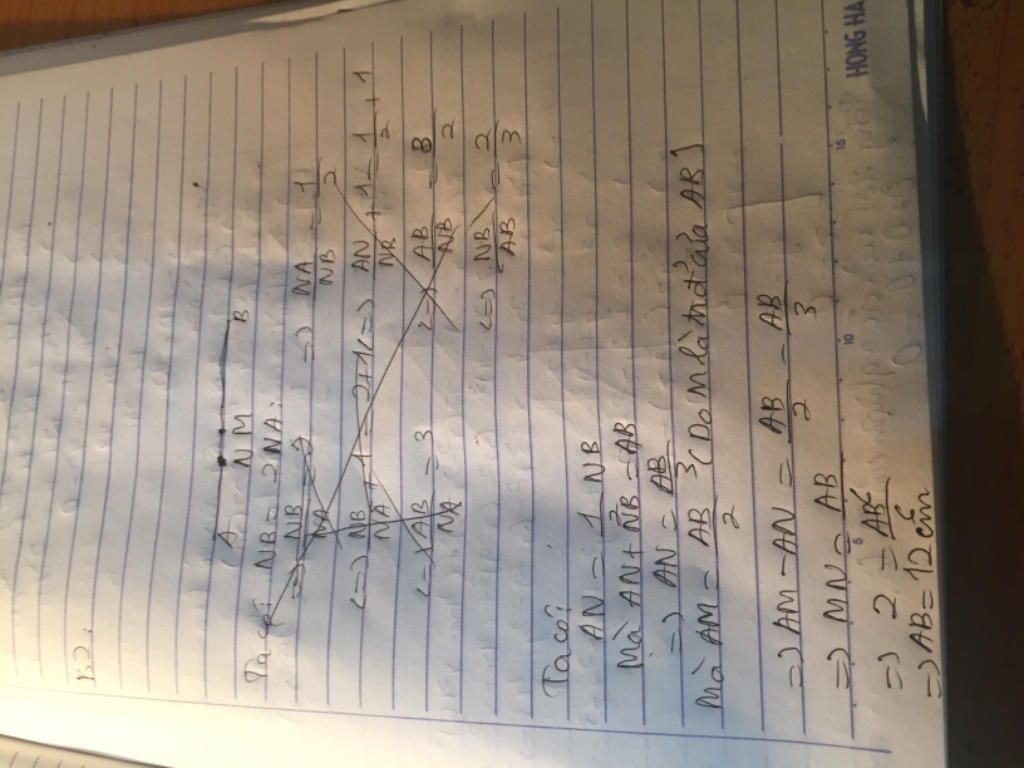 B2:
A N M B
Ta có:
NB = 2NA.
=> NB/NA = 2 => NA/NB = 1/2
<=> NB/NA + 1 = 2+1 <=> AN/NB + 1 = 1/2 + 1
<=> AB/NA = 3 <=> AB/NB = B/2
<=> NB/AB = 2/3
Ta có:
AN = 1/2 NB
Mà AN + NB = AB
=> AN = AB/3
Mà AM = AB/2 (Do M là trđ của AB)
=> AM - AN = AB/2 - AB/3
=> MN = AB/6
=> 2 = AB/6
=> AB = 12 cm
5 10 15
HONG HA